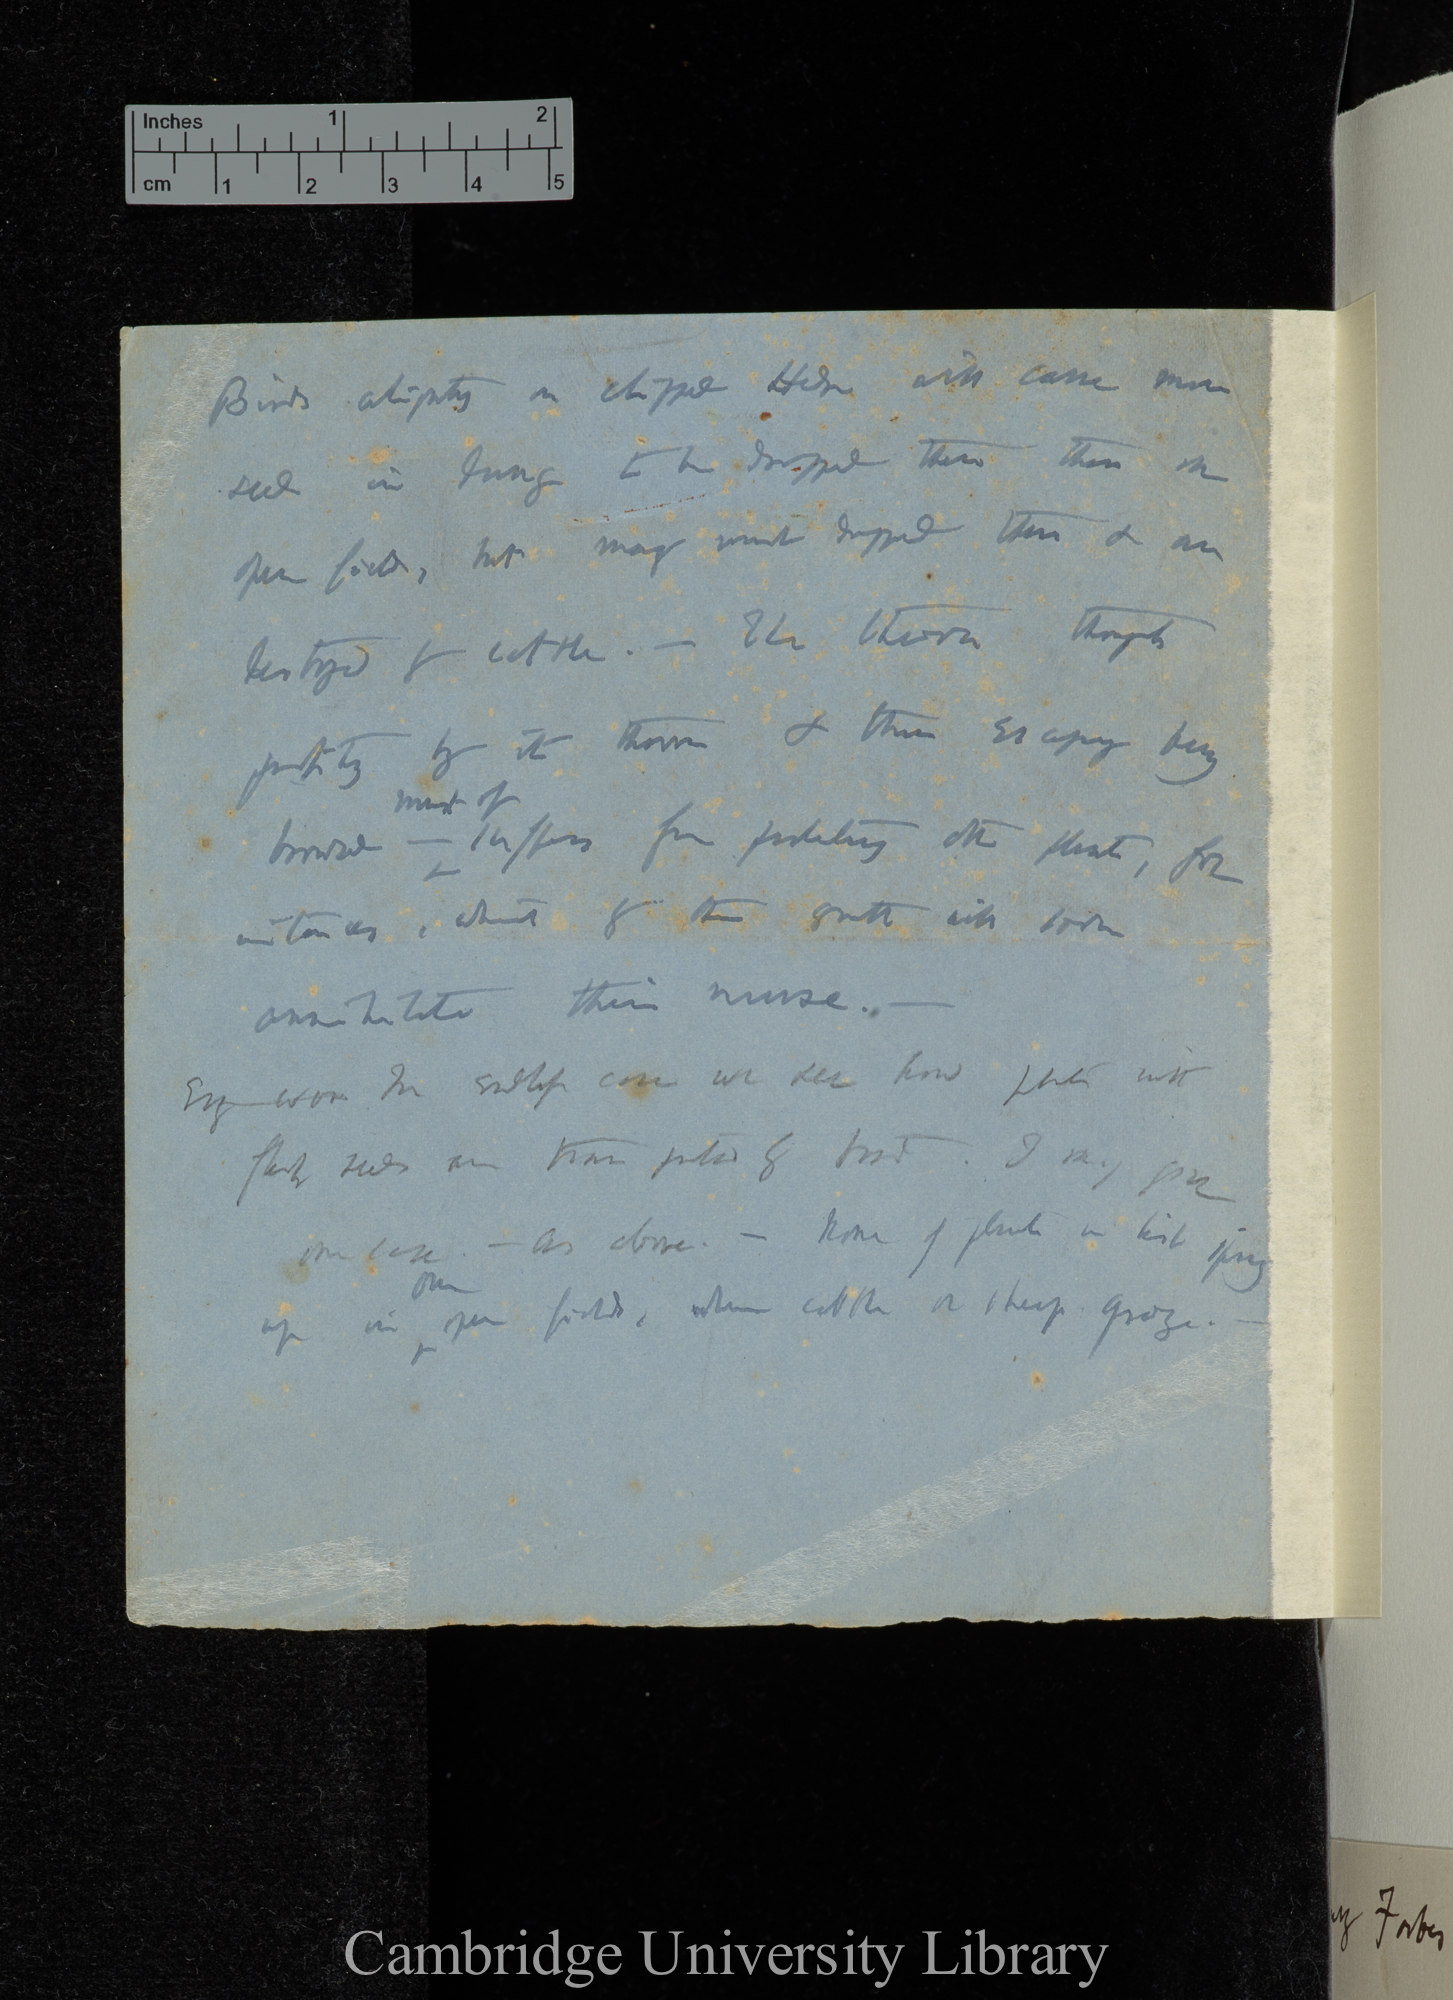 Inches 1 2
cm 1 2 3 4 5
Birds alighting on clipped Hedge will cause more
seed in dung to be dropped there than in
open field, but many must dropped there & are
destroyed by cattle. — The thorn though
profiting by its thorns & thus escaping being
most of
browsed — suffers from protecting other plants, for
instances, which by their growth will soon
annihilate their nurse. —
case we see how plants with
fleshy seeds are transported by birds. I may give
one case. — as above. — None of plants in list spring
our
up in open fields, where cattle or sheep graze. —
Forbes
Cambridge University Library